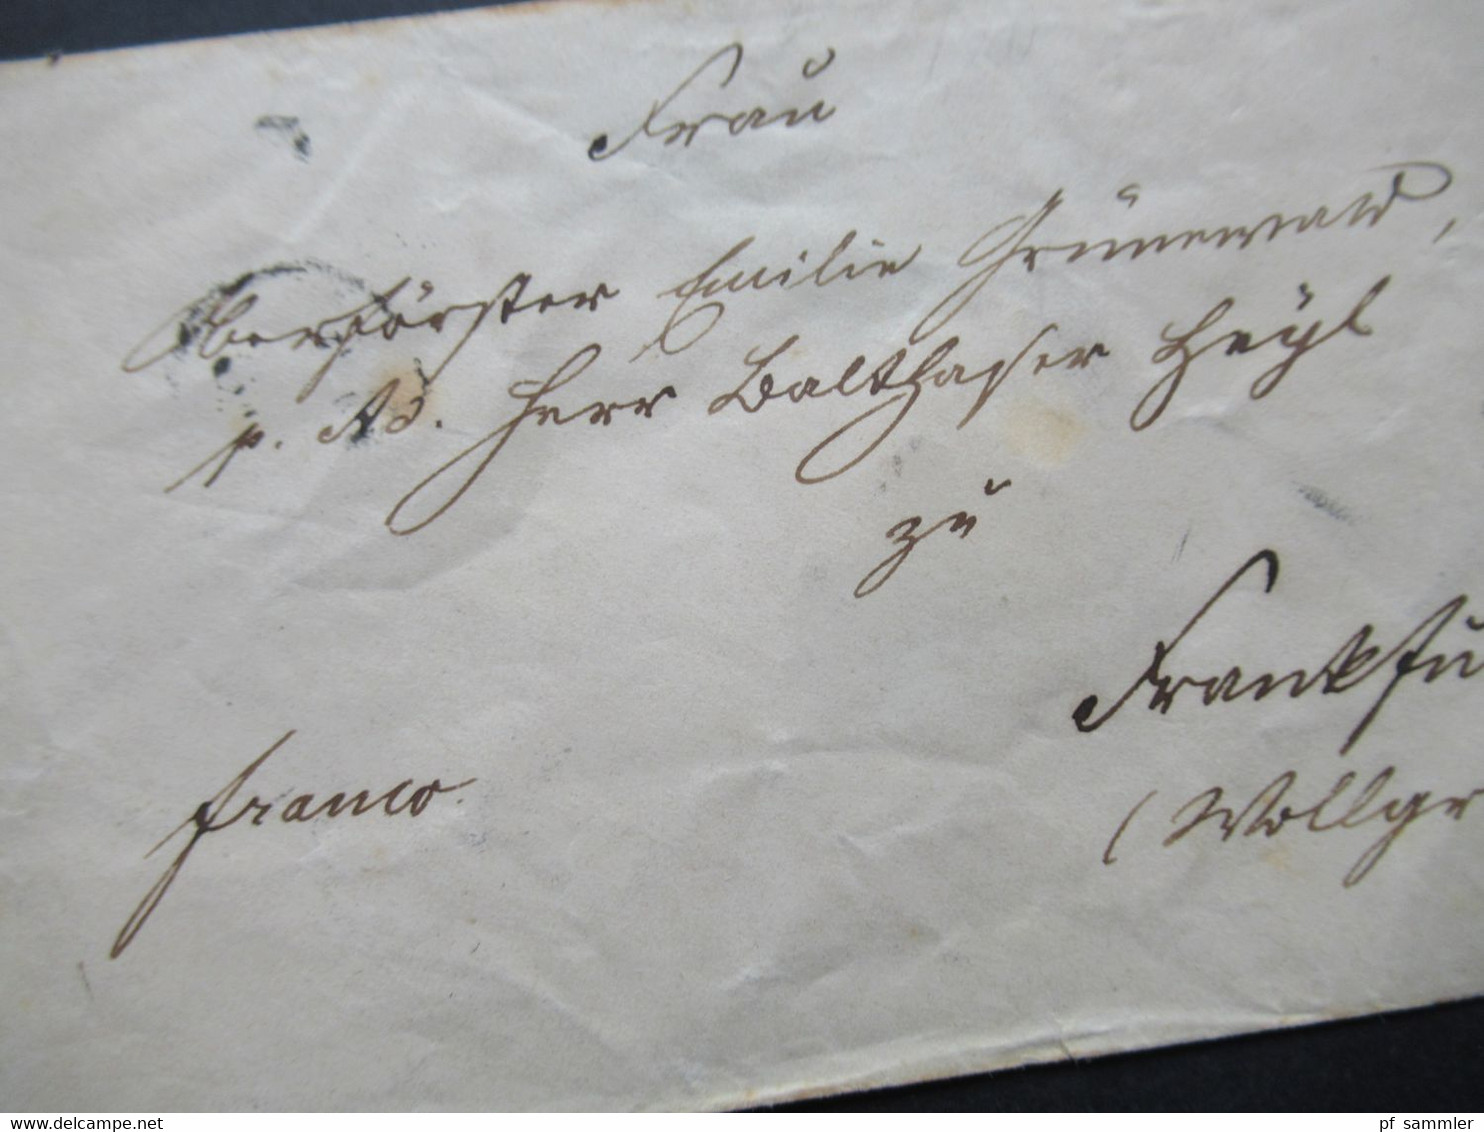 Frau
Oberförster Emilie Grünewald,
p. Ad. Herr Balthaser Heyl
zu
Frankfu
(Wollgr
franco.
delcampe.net
pf_sammler